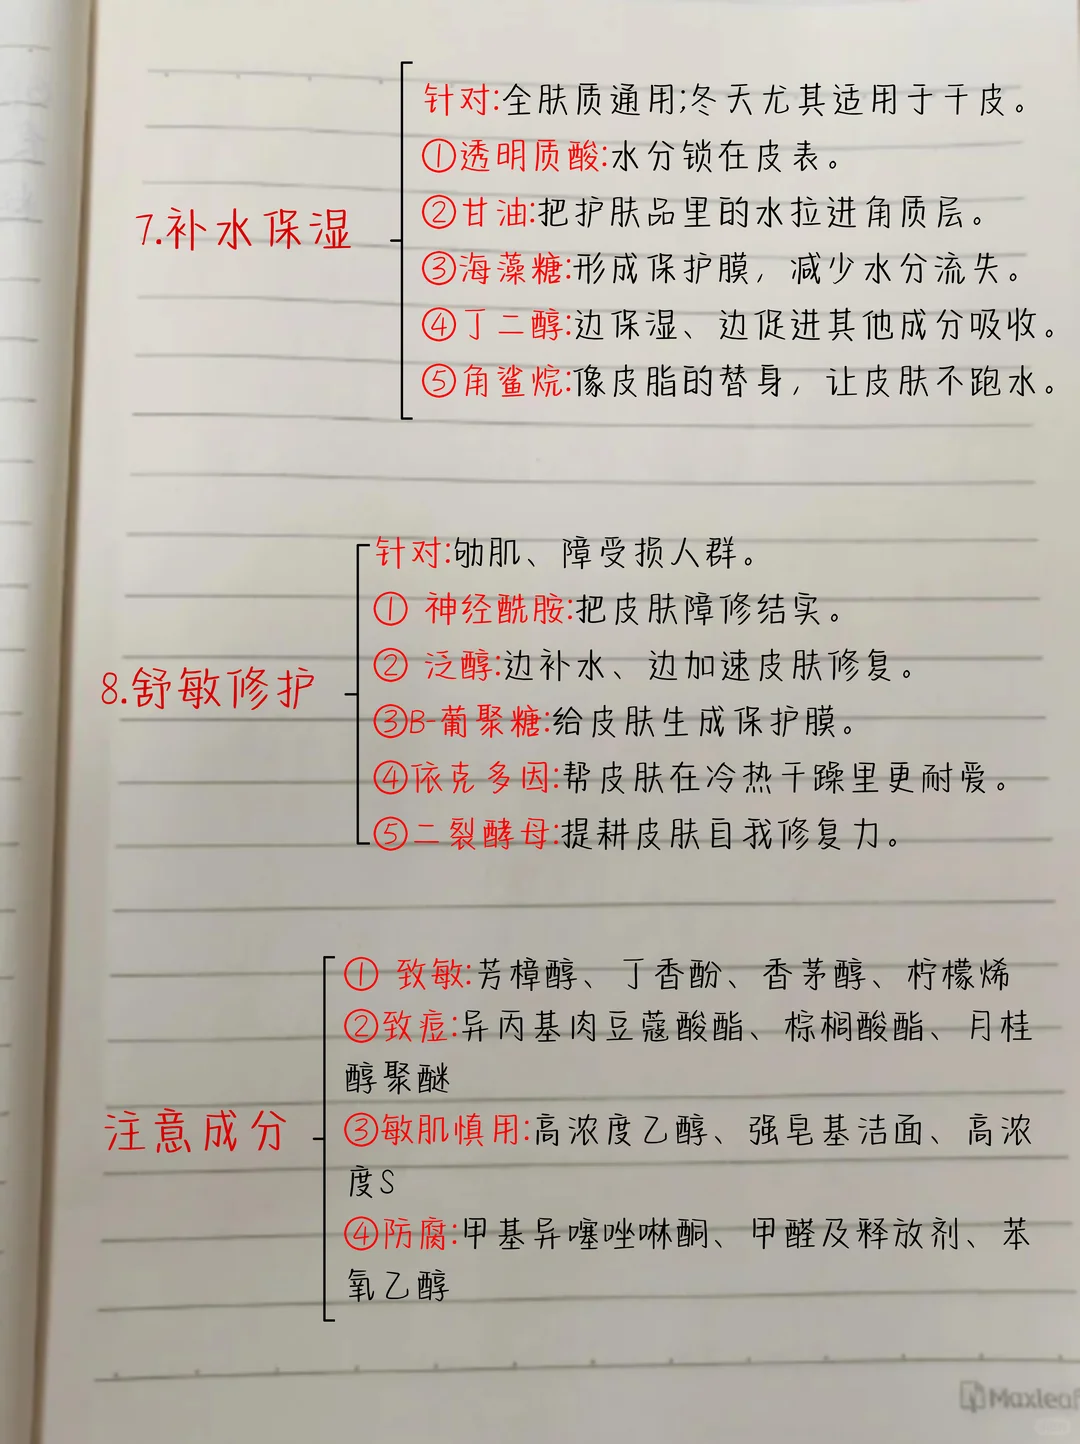 7.补水保湿
针对:全肤质通用;冬天尤其适用于干皮。
①透明质酸:水分锁在皮表。
②甘油:把护肤品里的水拉进角质层。
③海藻糖:形成保护膜，减少水分流失。
④丁二醇:边保湿、边促进其他成分吸收。
⑤角鲨烷:像皮脂的替身，让皮肤不跑水。
8.舒敏修护
针对:劬肌、障受损人群。
① 神经酰胺:把皮肤障修结实。
② 泛醇:边补水、边加速皮肤修复。
③B-葡聚糖:给皮肤生成保护膜。
④依克多因:帮皮肤在冷热干躁里更耐爱。
⑤二裂酵母:提耕皮肤自我修复力。
注意成分
① 致敏:芳樟醇、丁香酚、香茅醇、柠檬烯
②致痘:异丙基肉豆蔻酸酯、棕榈酸酯、月桂
醇聚醚
③敏肌慎用:高浓度乙醇、强皂基洁面、高浓
度S
④防腐:甲基异噻唑啉酮、甲醛及释放剂、苯
氧乙醇
Maxleaf